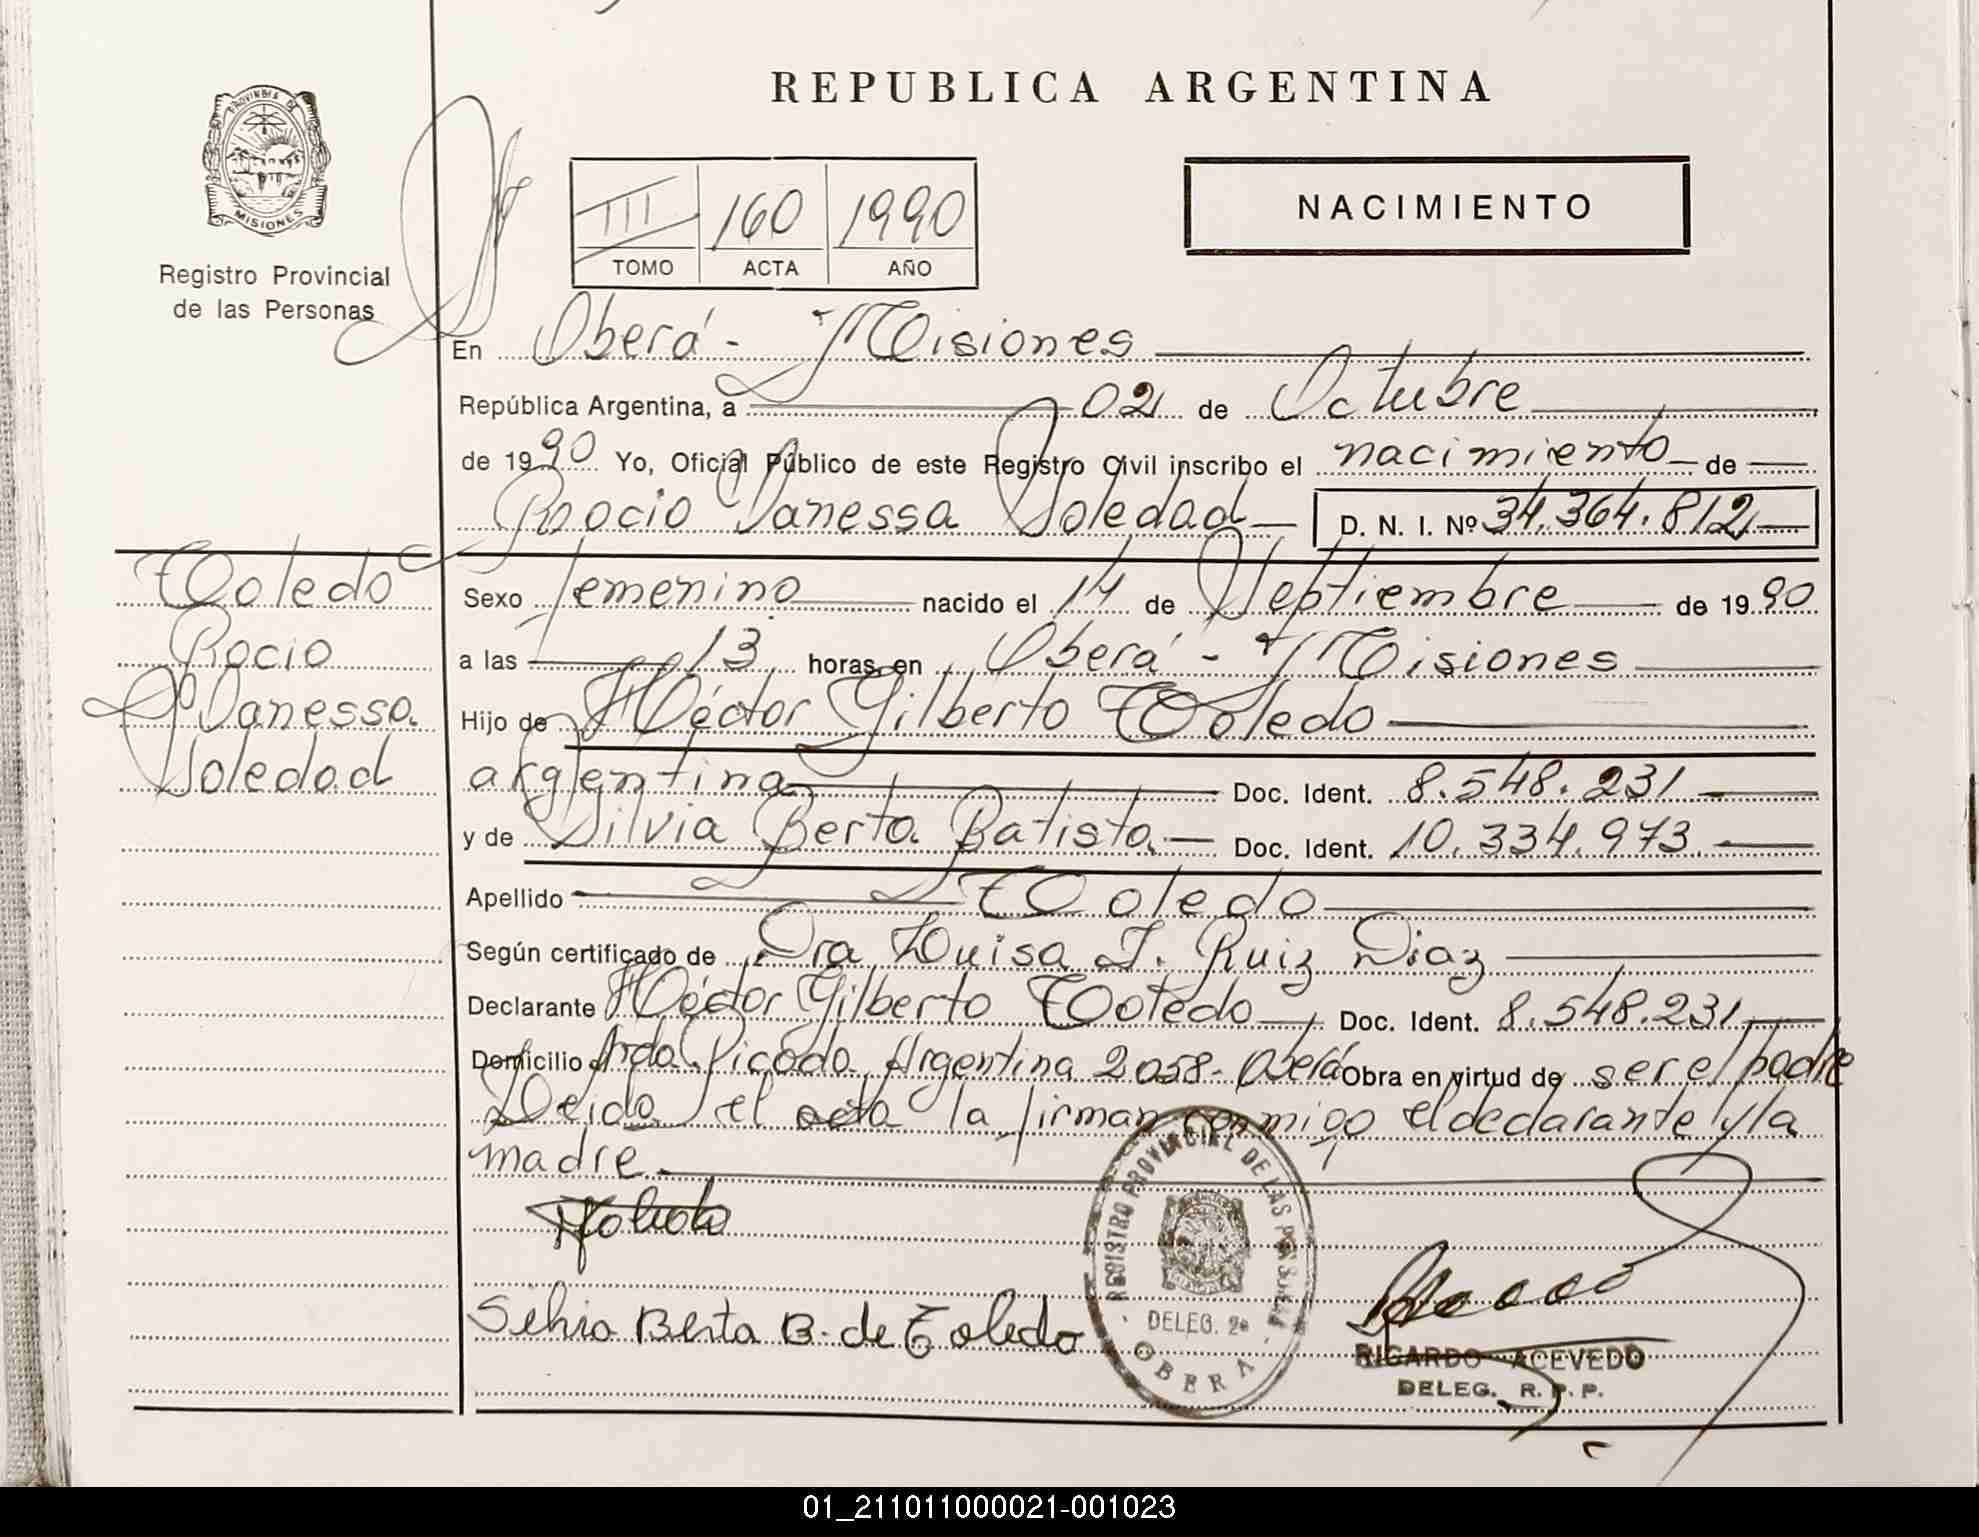 REPUBLICA ARGENTINA
PROVINCIA DE
MISIONES
Registro Provincial
de las Personas
III 160 1990
TOMO ACTA AÑO
NACIMIENTO
En Oberá - Misiones
República Argentina, a 02 de Octubre
de 1990 Yo, Oficial Público de este Registro Civil inscribo el nacimiento de
Rocio Vanessa Soledad D. N. I. Nº 34.364.812
Toledo
Rocio
Vanessa
Soledad
Sexo femenino nacido el 14 de Septiembre de 1990
a las 13 horas en Oberá - Misiones
Hijo de Héctor Gilberto Toledo
argentina Doc. Ident. 8.548.231
y de Silvia Berta Batista Doc. Ident. 10.334.973
Apellido Toledo
Según certificado de Dra Luisa J. Ruiz Diaz
Declarante Héctor Gilberto Toledo Doc. Ident. 8.548.231
Domicilio Avda. Picada Argentina 2058 - Oberá Obra en virtud de ser el padre
Leida el acta la firman conmigo el declarante y la
madre
Silvia Berta B. de Toledo
REGISTRO PROVINCIAL DE LAS PERSONAS
DELEG. 2ª
OBERA
RICARDO ACEVEDO
DELEG. R. P. P.
01_211011000021-001023